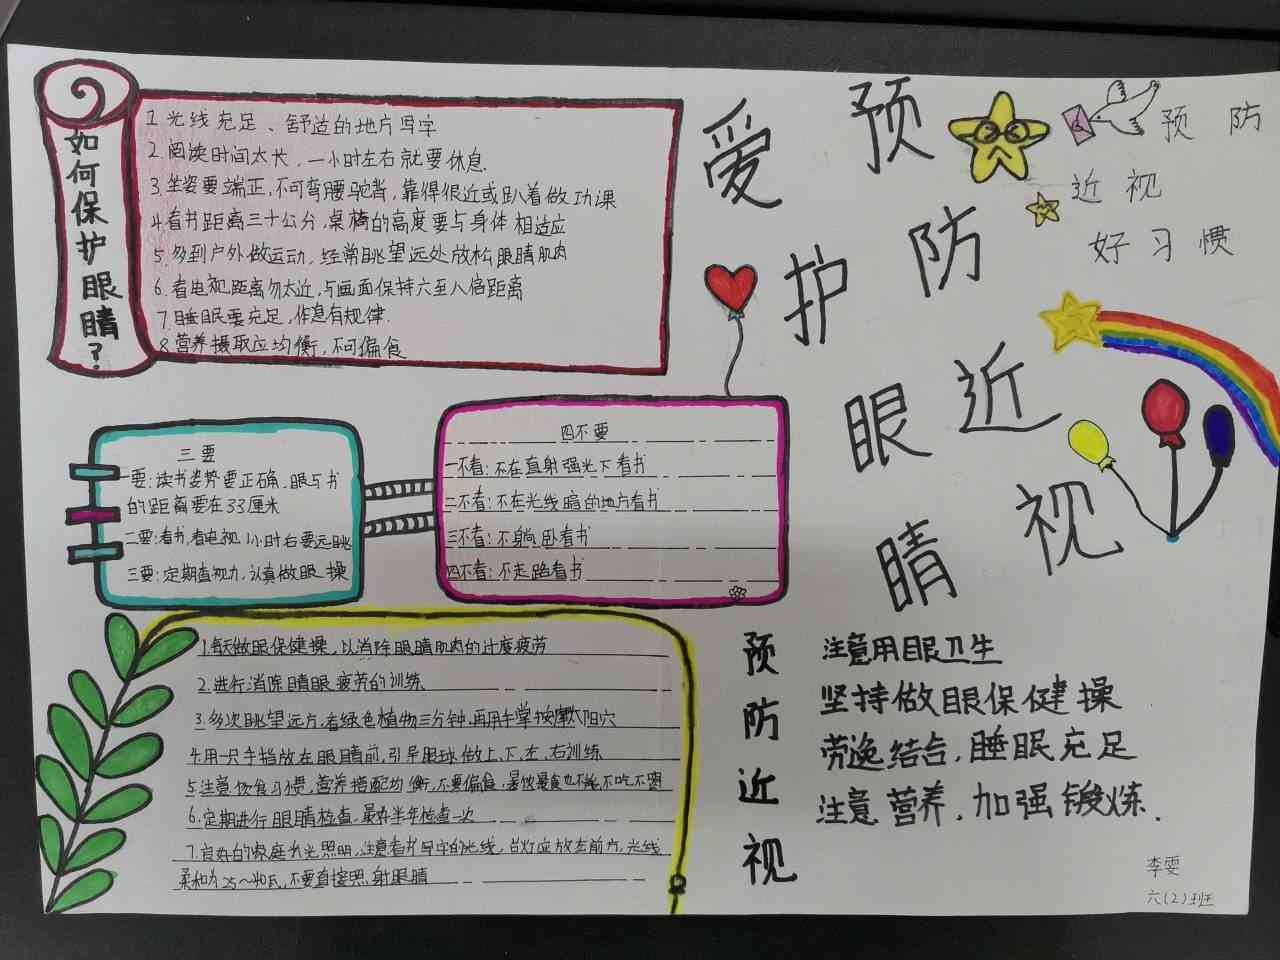 如何保护眼睛？
1.光线充足、舒适的地方写字
2.阅读时间太长，一小时左右就要休息.
3.坐姿要端正，不可弯腰驼背，靠得很近或趴着做功课
4.看书距离三十公分，桌椅的高度要与身体相适应
5.多到户外做运动，经常眺望远处放松眼睛肌肉
6.看电视距离勿太近，与画面保持六至八倍距离
7.睡眠要充足，作息有规律.
8.营养摄取应均衡，不可偏食
爱护眼睛
预防近视
预防
近视
好习惯
三要
一要:读书姿势要正确，眼与书
的距离要在33厘米
二要:看书，看电视1小时后要远眺
三要:定期查视力，认真做眼操
四不要
一不看:不在直射强光下看书
二不看:不在光线暗的地方看书
三不看:不躺卧看书
四不看:不走路看书
1.每天做眼保健操，以消除眼睛肌肉的过度疲劳
2.进行消除睛眼疲劳的训练
3.多次眺望远方，看绿色植物三分钟，再用手掌按摩太阳穴
4.用一只手指放在眼睛前，引导眼球做上、下、左、右训练
5.注意饮食习惯，营养搭配均衡，不要偏食，暴饮暴食也不能不吃不喝
6.定期进行眼睛检查，最好半年检查一次
7.良好的家庭灯光照明，注意看书写字的光线，台灯应放左前方，光线
柔和为25~40瓦，不要直接照射眼睛
预防近视
注意用眼卫生
坚持做眼保健操
劳逸结合，睡眠充足
注意营养，加强锻炼.
李雯
六(2)班